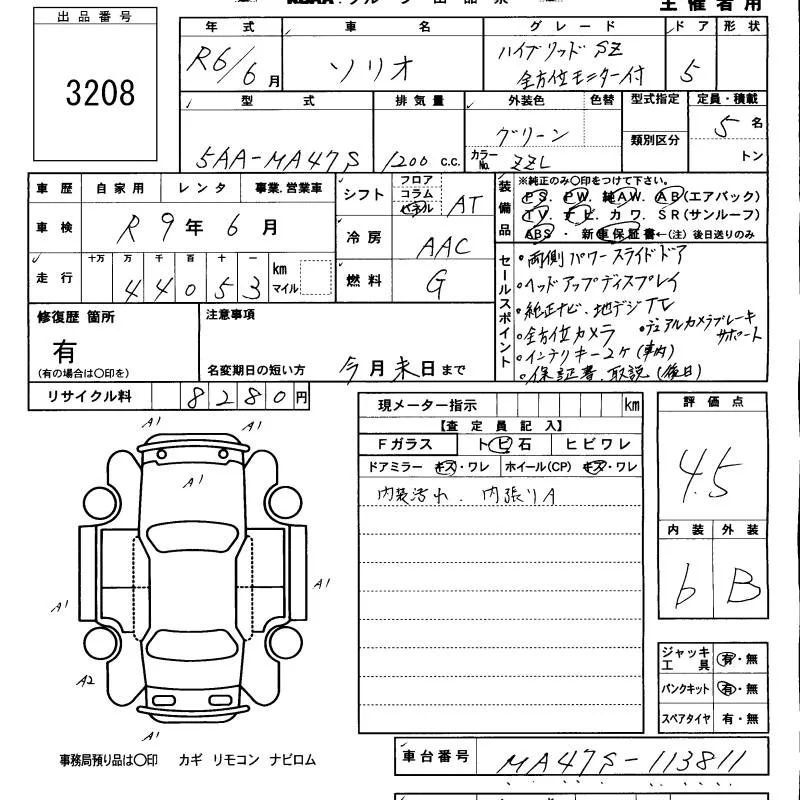 主催者用
出品番号
3208
年式 車名 グレード ドア 形状
R6/6月 ソリオ ハイブリッド SZ 5
全方位モニター付
型式 排気量 外装色 色替 型式指定 定員・積載
5AA-MA47S 1200 c.c. グリーン 5名
類別区分
カラーNo. ZZL トン
車歴 自家用 レンタ 事業.営業車
車検 R9年6月
走行 十万 万 千 百 十 一 km マイル
44053
シフト フロア コラム パネル AT
冷房 AAC
燃料 G
装備品
※純正のみ〇印をつけて下さい。
PS. PW. 純AW. AB(エアバック)
TV. ナビ. カワ. SR(サンルーフ)
ABS・新車保証書←(注) 後日送りのみ
セールスポイント
・両側パワースライドドア
・ヘッドアップディスプレイ
・純正ナビ.地デジTV
・全方位カメラ ・デュアルカメラブレーキサポート
・インテリキー2ケ(車内)
・保証書.取説(後日)
修復歴 箇所
有
(有の場合は〇印を)
注意事項
名変期日の短い方 今月末日まで
リサイクル料 8280円
現メーター指示 km
【査定員記入】
Fガラス トビ石 ヒビワレ
ドアミラー キズ・ワレ ホイール(CP) キズ・ワレ
内装汚れ. 内張りA
評価点
4.5
内装 外装
b B
A1 A1
A1
A1 A1
A2
A1
ジャッキ工具 有・無
パンクキット 有・無
スペアタイヤ 有・無
事務局預り品は〇印 カギ リモコン ナビロム
車台番号 MA47S-113811